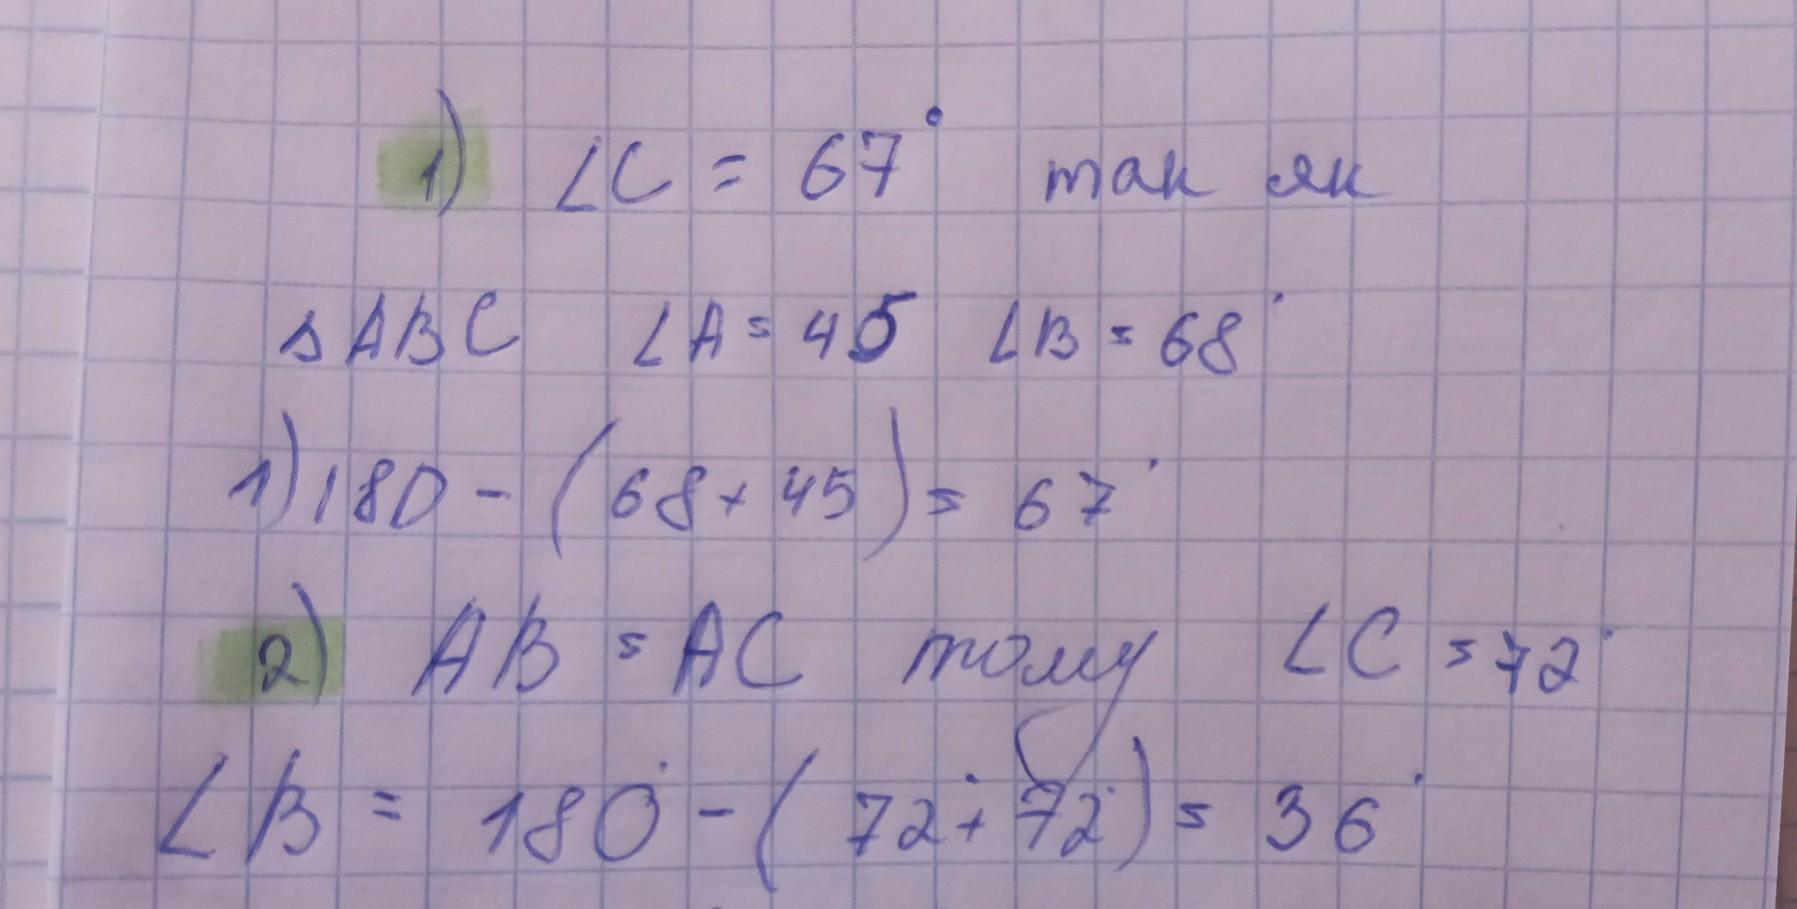 1) ∠C = 67° так як
△ABC ∠A = 45 ∠B = 68°
1) 180 - (68 + 45) = 67°
2) AB = AC тому ∠C = 72°
∠B = 180° - (72° + 72°) = 36°